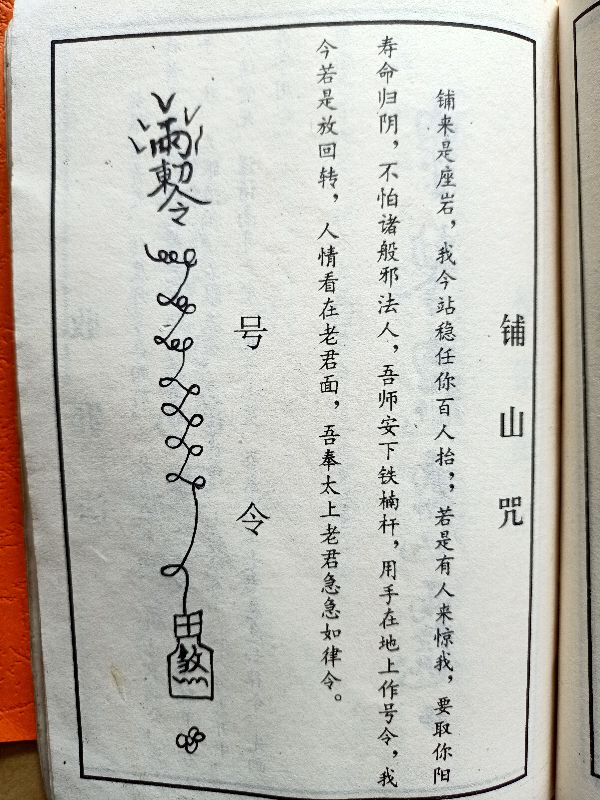 铺山咒
铺来是座岩，我今站稳任你百人抬，，若是有人来惊我，要取你阳
寿命归阴，不怕诸般邪法人，吾师安下铁楠杆，用手在地上作号令，我
今若是放回转，人情看在老君面，吾奉太上老君急急如律令。
号令
雨
敕令
田
煞